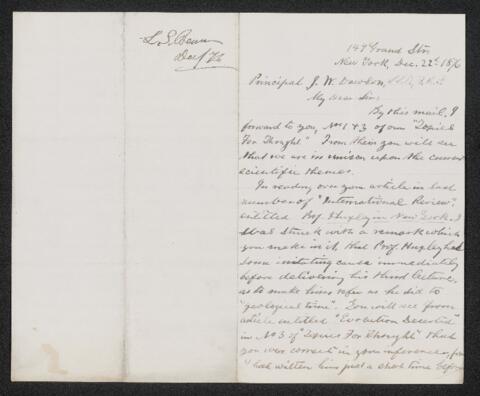 L. S. Bean
Dec/76
149 Grand Str.
New York, Dec. 22d 1876
Principal J. W. Dawson,
My Dear Sir:
By this mail, I
forward to you, Nos 1 & 3 of our "Topics
For Thought" From them you will see
that we are in unison upon the current
scientific themes.
In reading over your article in last
number of "International Review",
entitled Prof. Huxley in New York, I
was struck with a remark which
you make in it, that Prof. Huxley had
some irritating cause immediately
before delivering his third lecture,
as to make him refer as he did to
"geological time". You will see from
article entitled "Evolution Dissected"
in No 3 of "Topics For Thought" that
you were correct in your inference, for
I had written him just a short time before